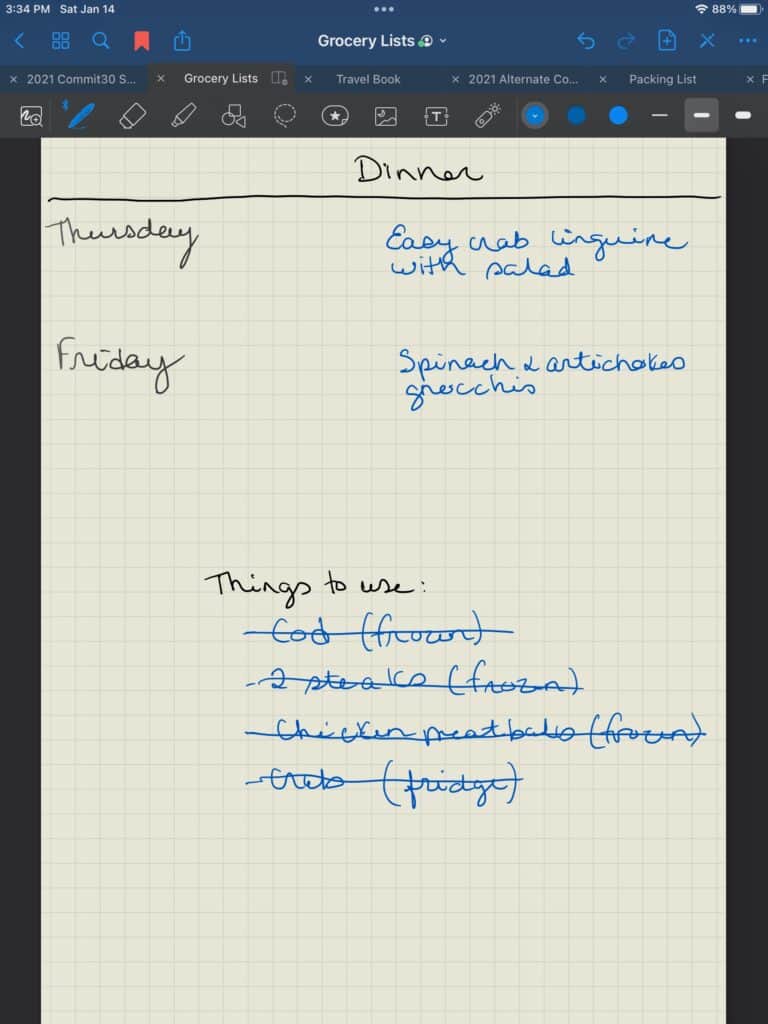 3:34 PM Sat Jan 14 88%
Grocery Lists
2021 Commit30 S... Grocery Lists Travel Book 2021 Alternate Co... Packing List F
Dinner
Thursday Easy crab linguine
with salad
Friday Spinach & artichokes
gnocchis
Things to use:
- Cod (frozen)
- 2 steaks (frozen)
- Chicken meatballs (frozen)
- Crab (fridge)